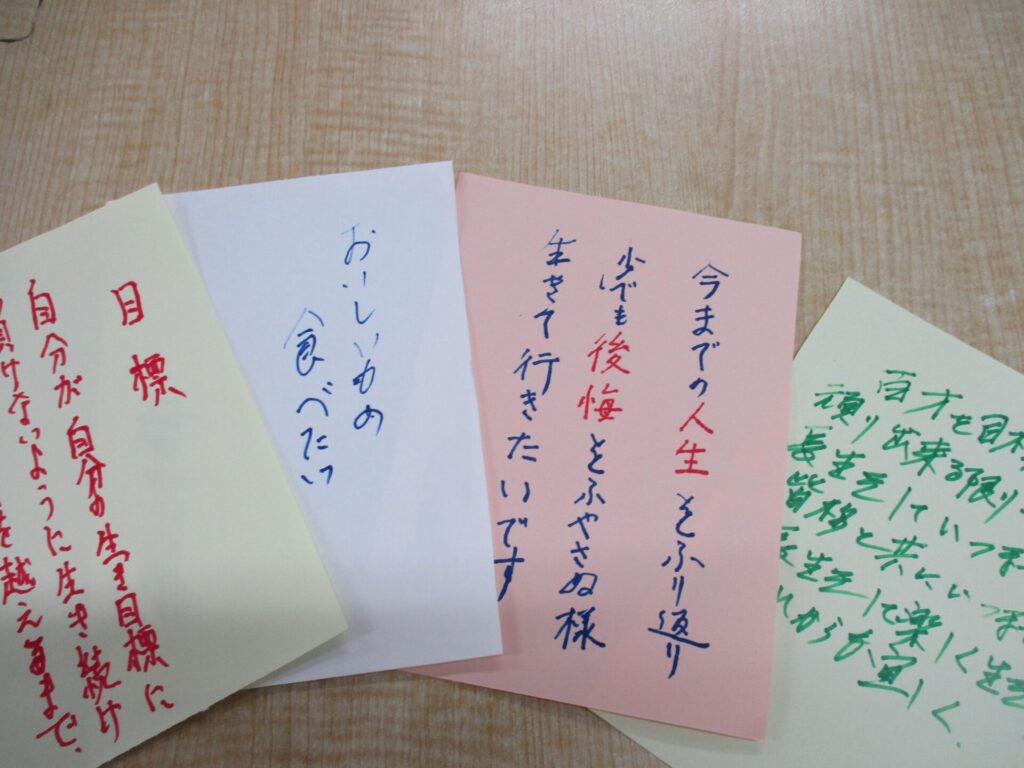 目標
自分が自分の生き目標に
負けないように生き続け
を越えるまで、
おいしいもの
食べたい
今までの人生をふり返り
少しでも後悔をふやさぬ様
生きて行きたいです
百才を目
頑り出来る限り
長生をしていつ
皆様と共にいつ
長生をして楽しく生
れからお宜しく、